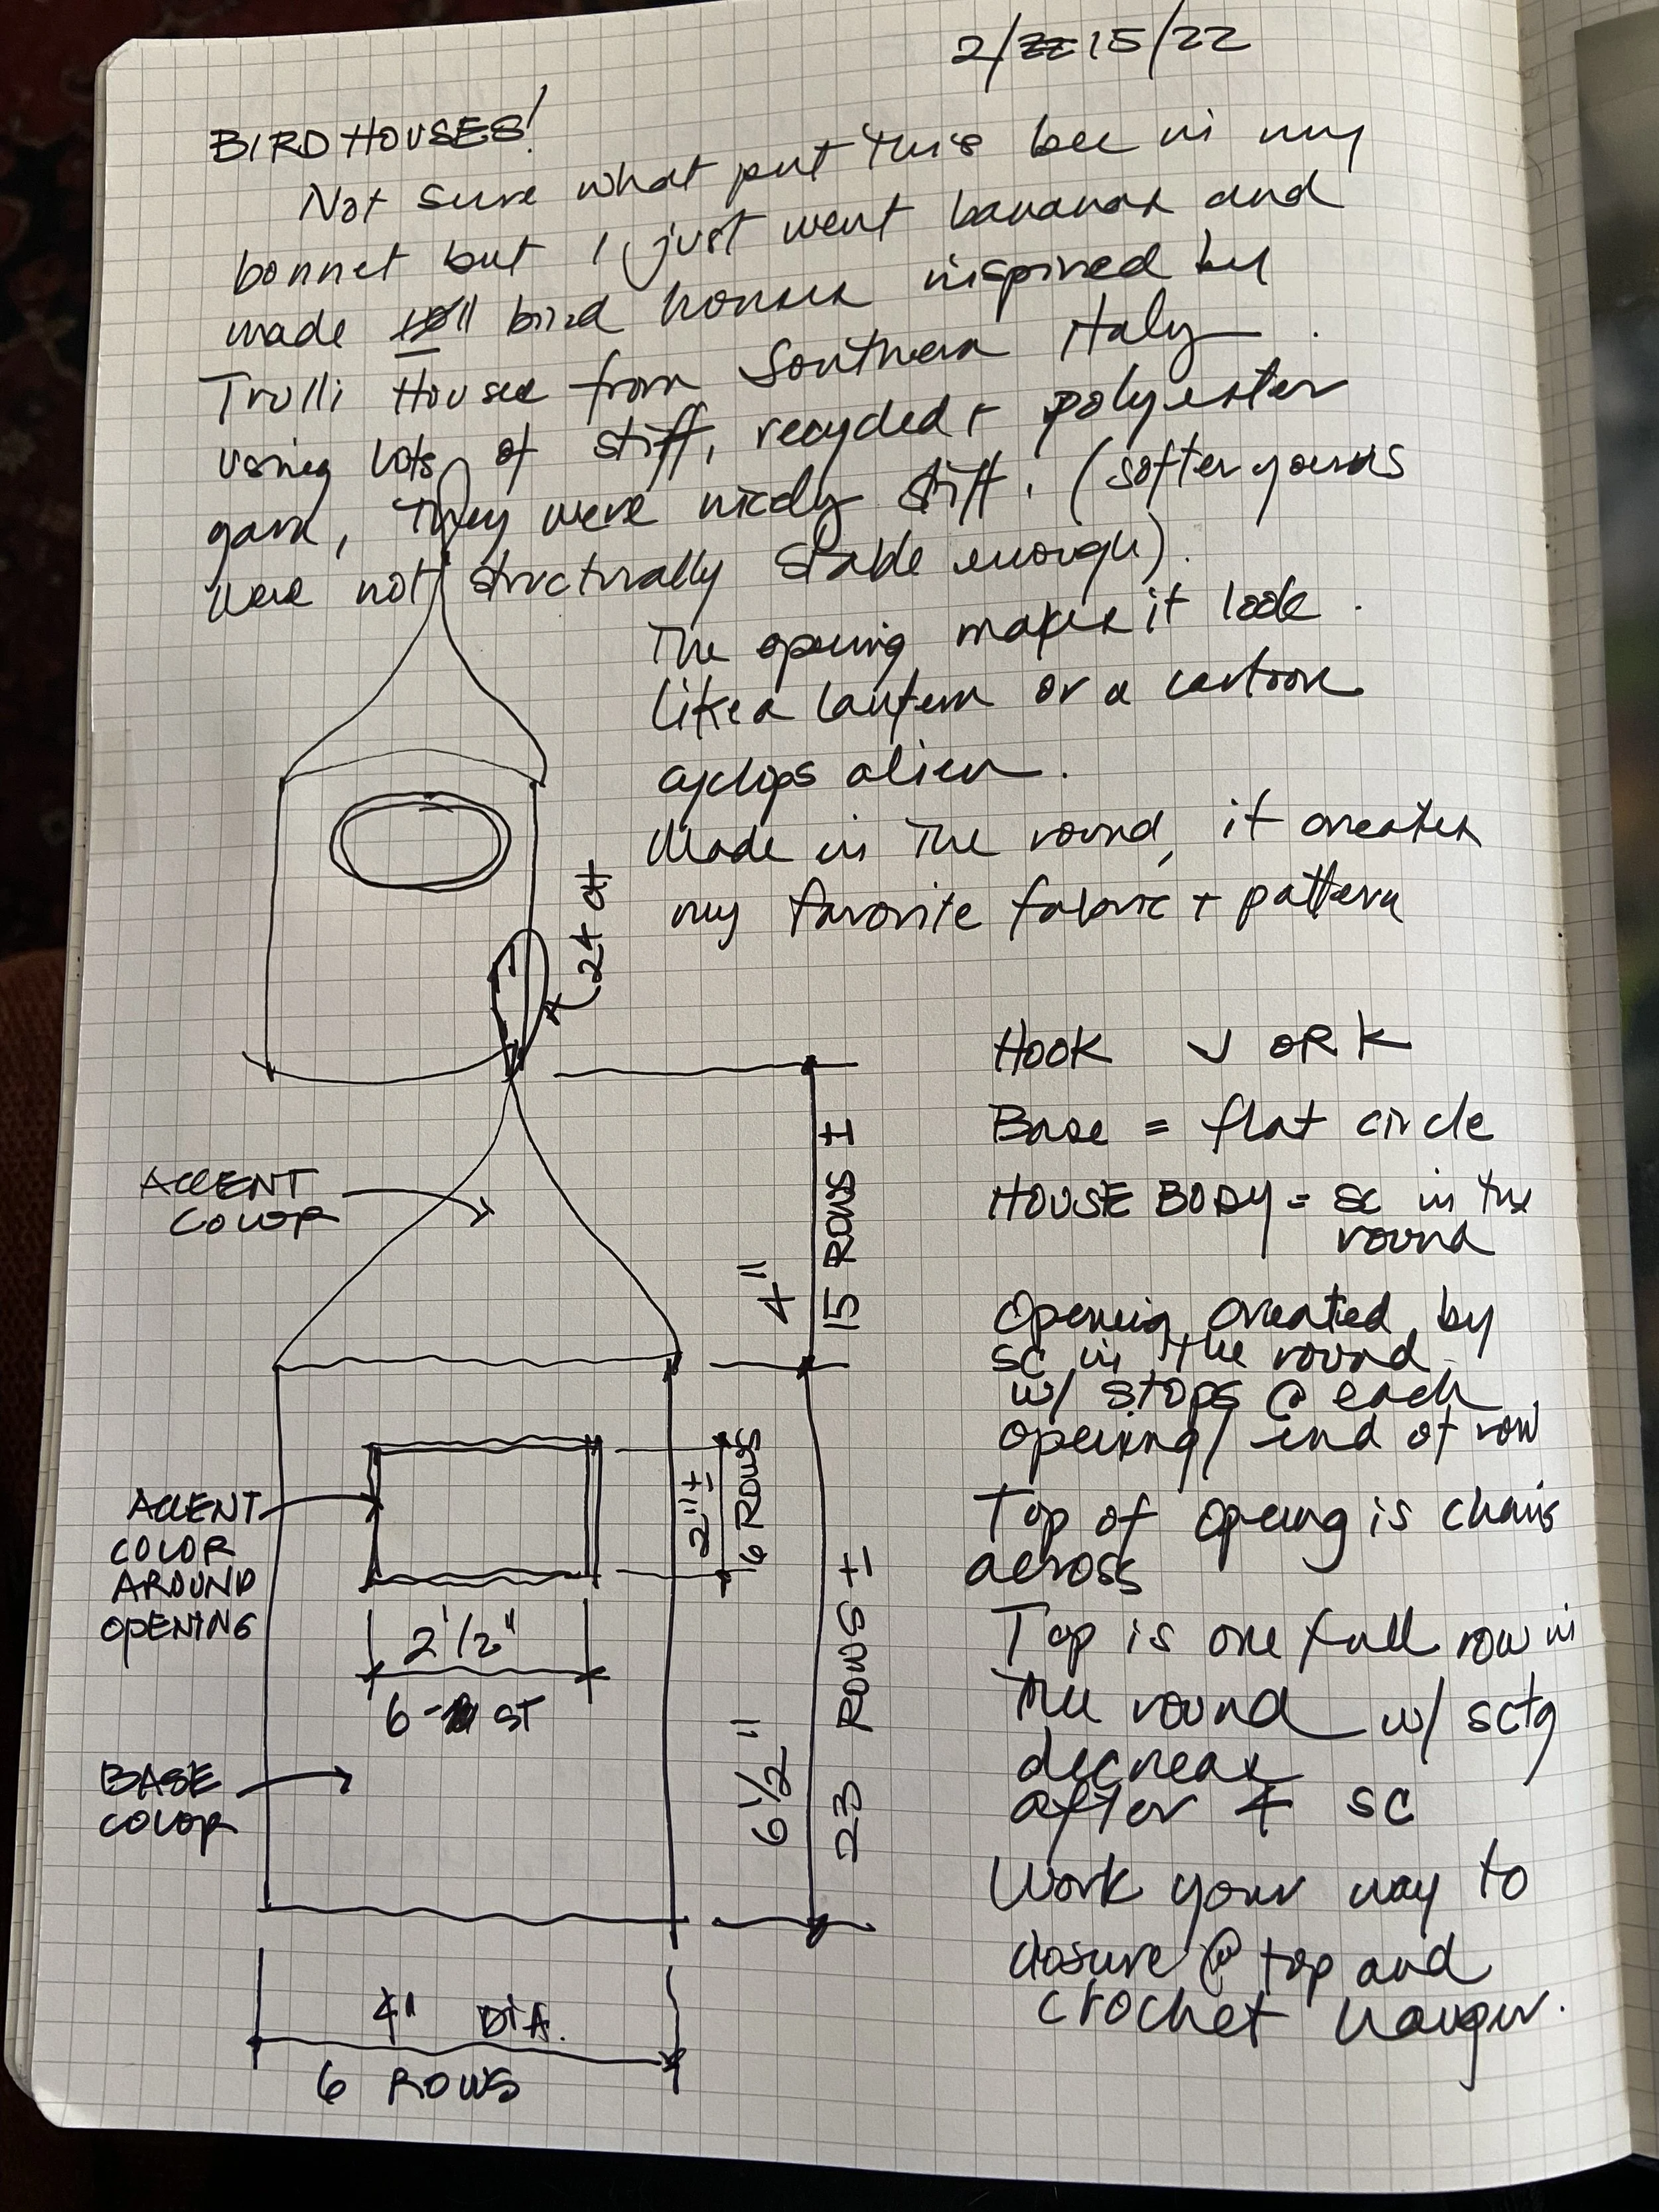 2/15/22
BIRD HOUSES!
Not sure what put this bee in my
bonnet but I just went bananas and
made 11 bird houses inspired by
Trulli Houses from Southern Italy
using lots of stiff, recycled + polyester
yarn, they were nicely stiff. (softer yarns
were not structurally stable enough).
The opening makes it look
like a lantern or a cartoon
cyclops alien.
Made in the round, it creates
my favorite fabric + pattern
24 ch
HOOK J OR K
Base = flat circle
HOUSE BODY = sc in the
round
Opening created by
sc in the round
w/ stops @ each
opening/ end of row
Top of opening is chains
across
Top is one full row in
the round w/ sctg
decrease
after 4 sc
Work your way to
closure @ top and
crochet hanger.
ACCENT
COLOR
4"
15 ROWS ±
ACCENT
COLOR
AROUND
OPENING
2"±
6 ROWS
2 1/2"
6- ST
BASE
COLOR
6 1/2"
23 ROWS ±
4" DIA.
6 ROWS